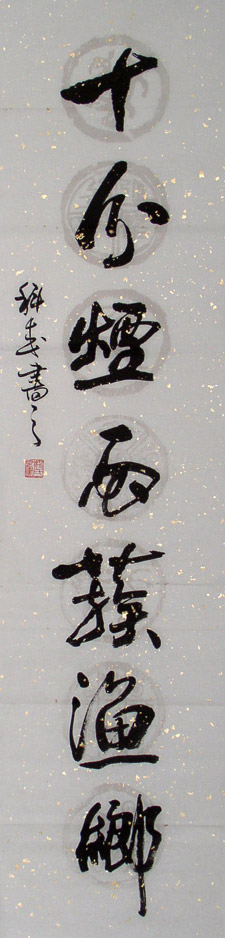 十分煙雨簇漁鄉
書之